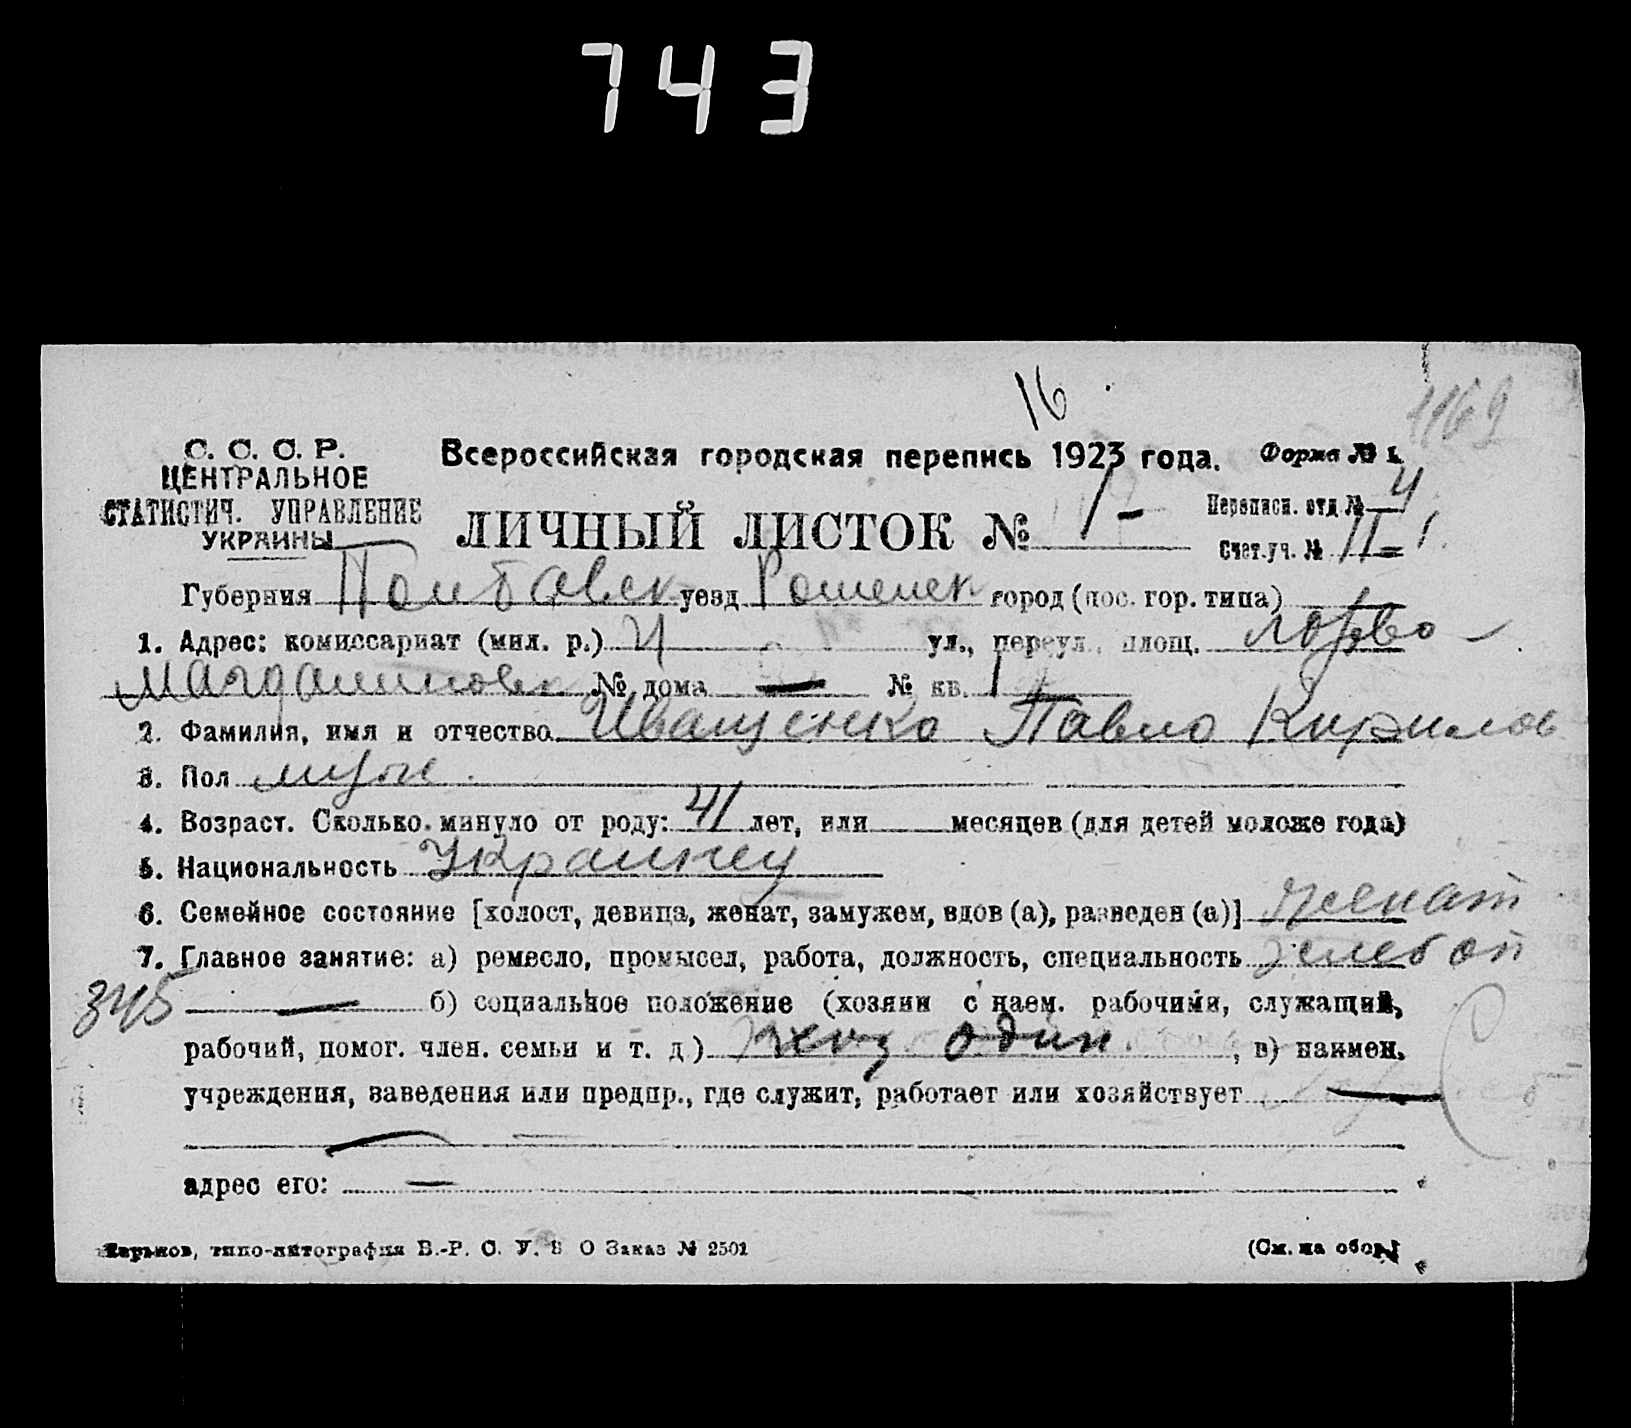 743
16
1169
С. С. С. Р.
ЦЕНТРАЛЬНОЕ
СТАТИСТИЧ. УПРАВЛЕНИЕ
УКРАИНЫ
Всероссийская городская перепись 1923 года.
Форма № 1.
ЛИЧНЫЙ ЛИСТОК № 1-
Переписн. отд. № 4
Счет. уч. № II
Губерния Полтавск уезд Роменск город (пос. гор. типа)
1. Адрес: комиссариат (мил. р.) 4 ул., переул., площ.
№ дома — № кв. 1
2. Фамилия, имя и отчество Иващенко Павло Кирилов
3. Пол муж.
4. Возраст. Сколько минуло от роду: 41 лет, или месяцев (для детей моложе года)
5. Национальность Украинец
6. Семейное состояние [холост, девица, женат, замужем, вдов (а), разведен (а)] женат
7. Главное занятие: а) ремесло, промысел, работа, должность, специальность
345 — б) социальное положение (хозяин с наем. рабочими, служащий,
рабочий, помог. член. семьи и т. д) хоз один, в) наимен.
учреждения, заведения или предпр., где служит, работает или хозяйствует —
адрес его: —
Харьков, типо-литография В.-Р. С. У. В О Заказ № 2501
(См. на обор.